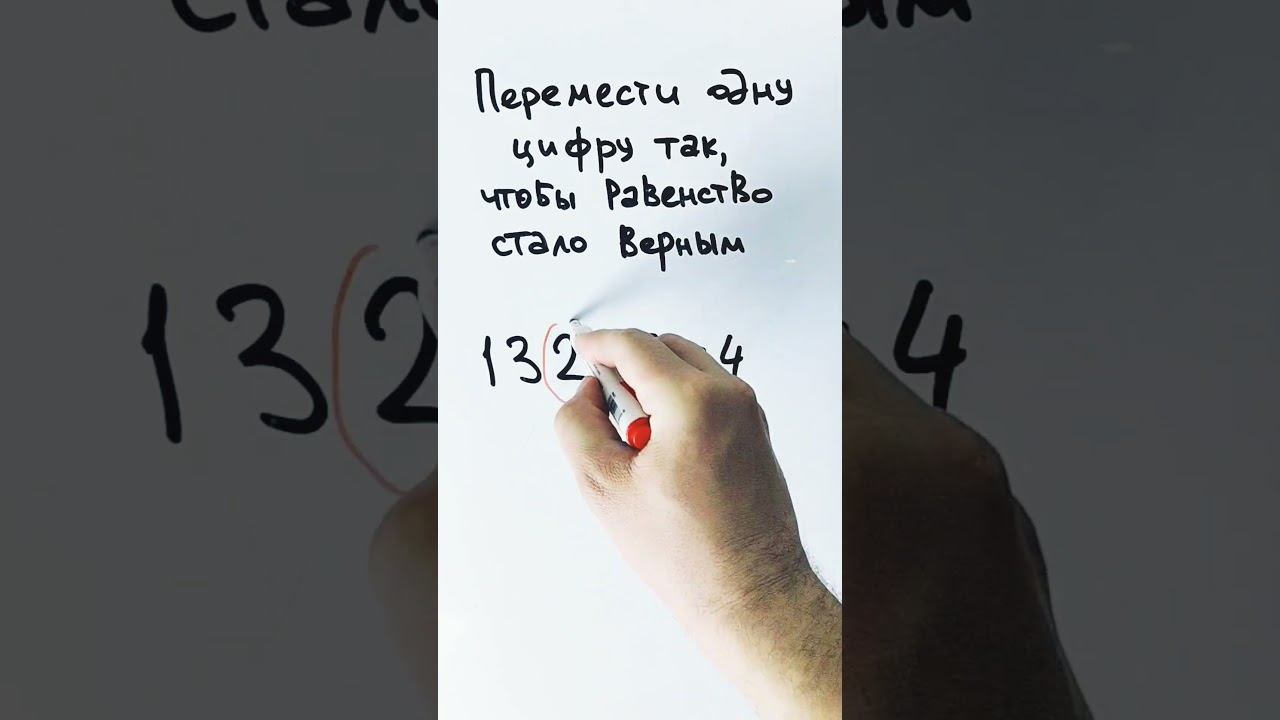 стало
Перемести одну
цифру так,
чтобы равенство
стало верным
132 4